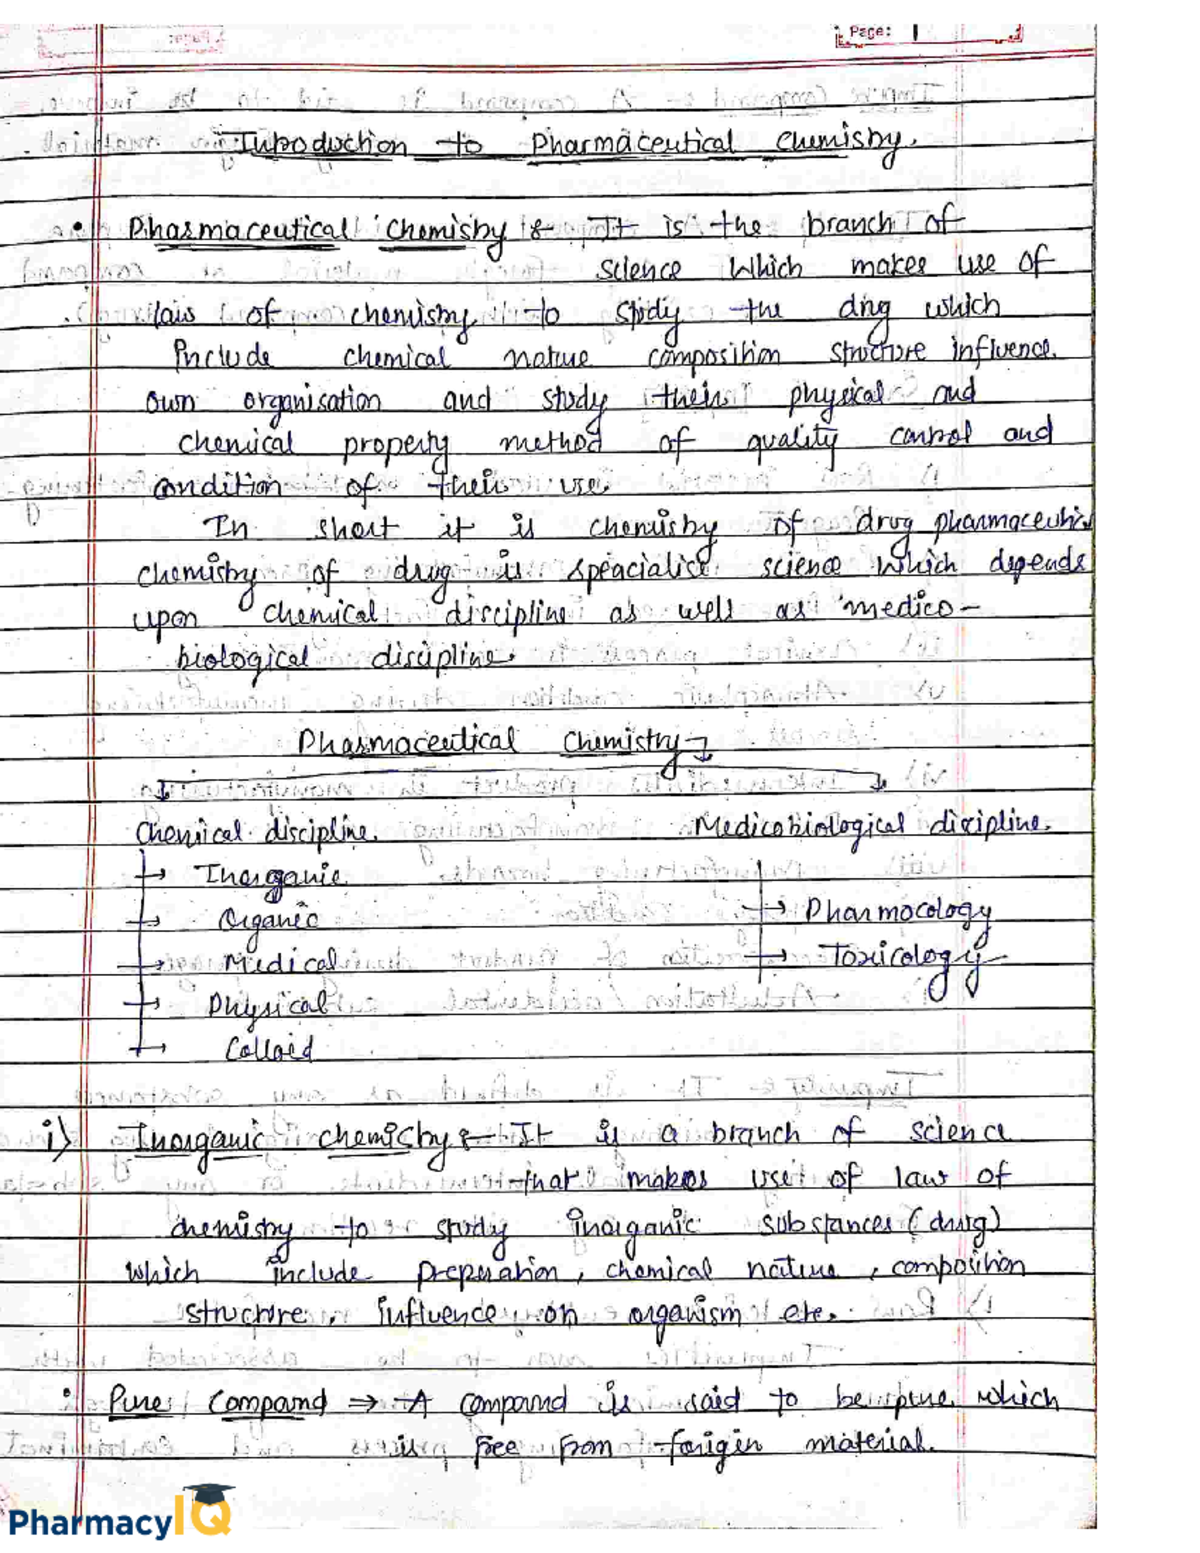 Page: 1
Introduction to Pharmaceutical Chemistry.
• Pharmaceutical Chemistry :- It is the branch of
science which makes use of
laws of chemistry to study the drug which
include chemical nature composition structure influence
own organisation and study their physical and
chemical property method of quality control and
condition of their use
In short it is chemistry of drug pharmaceutical
chemistry of drug is speacialise science which depends
upon chemical discipline as well as medico-
biological discipline.
Pharmaceutical Chemistry
Chemical discipline. Medicobiological dicipline.
→ Inorganic
→ Organic → Pharmocology
→ Medical → Toxicology
→ Physical
→ Colloid
i) Inorganic chemistry :- It is a branch of science
that makes use of law of
chemistry to study inorganic substances (drug)
which include preperation, chemical nature, composition
structure, influence on organism etc.
• Pure Compound → A compound is said to be pure which
is free from forigen material.
PharmacyIQ